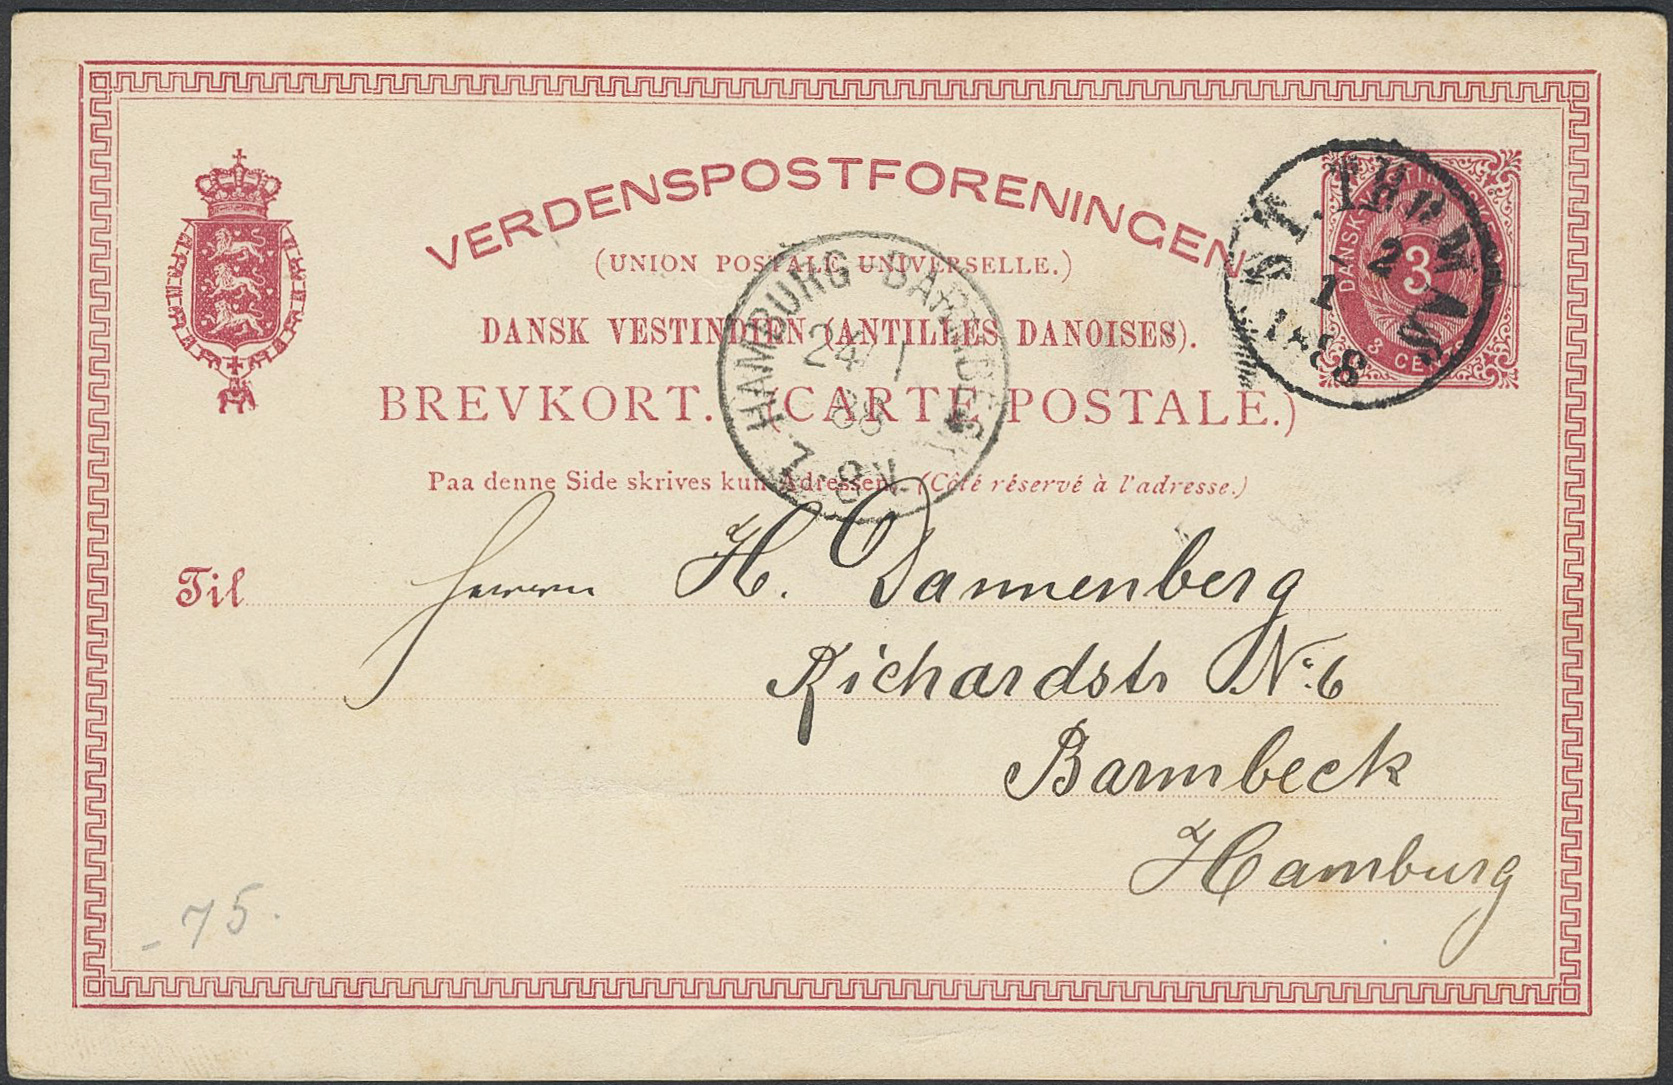 VERDENSPOSTFORENINGEN
(UNION POSTALE UNIVERSELLE.)
DANSK VESTINDIEN (ANTILLES DANOISES).
BREVKORT. (CARTE POSTALE.)
Paa denne Side skrives kun Adressen. (Côté réservé à l'adresse.)
ST. THOMAS
2
1
1888
DANSK
3
3 CE
HAMBURG BARMBECK
24/1
88
7-8V.
Til Herrn H. Dannenberg
Richardstr No. 6
Barmbeck
Hamburg
- 75.